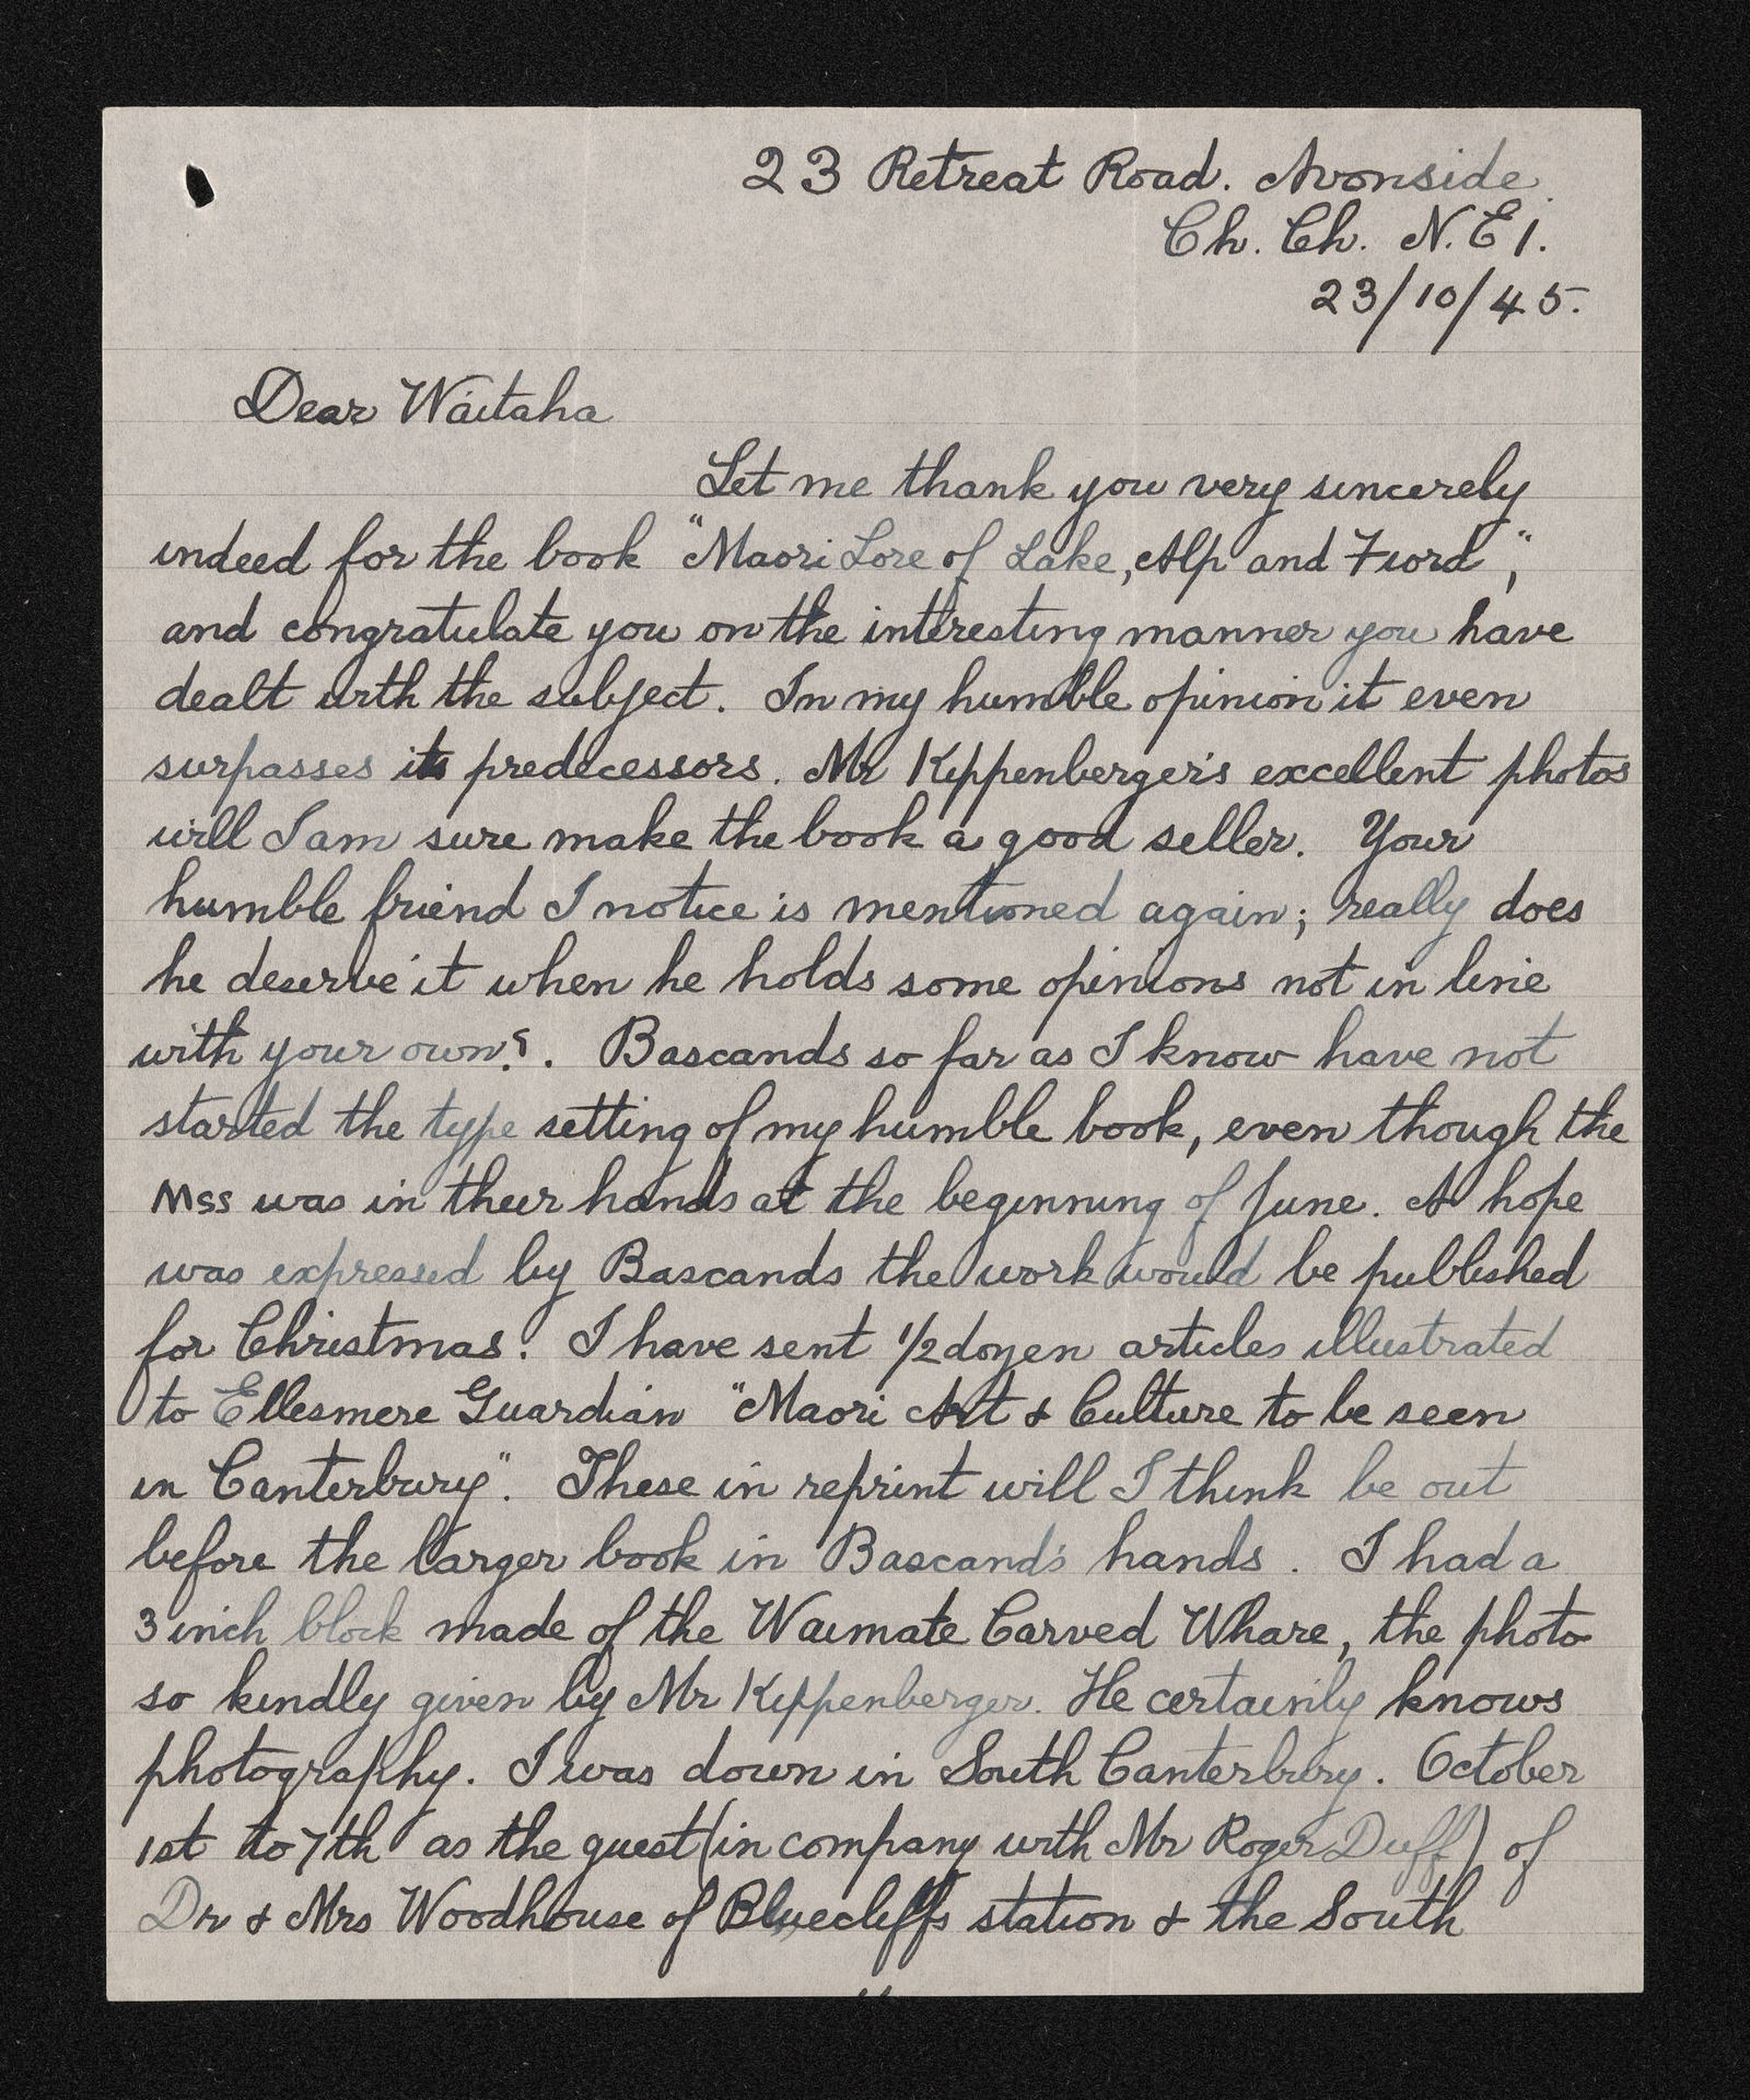 23 Retreat Road. Avonside.
Ch. Ch. N.E 1.
23/10/45.
Dear Waitaha
Let me thank you very sincerely
indeed for the book "Maori Lore of Lake, Alp and Fiord",
and congratulate you on the interesting manner you have
dealt with the subject. In my humble opinion it even
surpasses its predecessors. Mr Kippenberger's excellent photos
will I am sure make the book a good seller. Your
humble friend I notice is mentioned again; really does
he deserve it when he holds some opinions not in line
with your own?. Bascands so far as I know have not
started the type setting of my humble book, even though the
Mss was in their hands at the beginning of June. A hope
was expressed by Bascands the work would be published
for Christmas! I have sent 1/2 dozen articles illustrated
to Ellesmere Guardian "Maori Art & Culture to be seen
in Canterbury". These in reprint will I think be out
before the larger book in Bascand's hands. I had a
3 inch block made of the Waimate Carved Whare, the photo
so kindly given by Mr Kippenberger. He certainly knows
photography. I was down in South Canterbury. October
1st to 7th as the guest (in company with Mr Roger Duff) of
Dr & Mrs Woodhouse of Bluecliffs station & the South